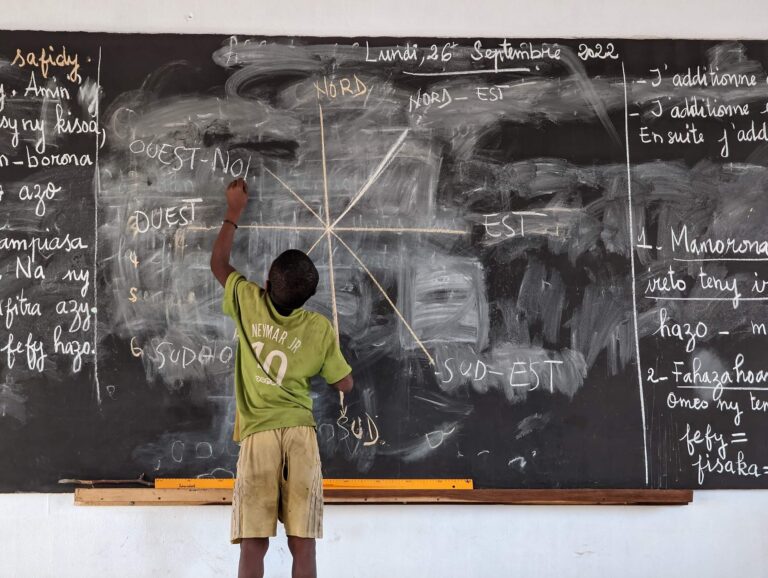 safidy.
Amin
kisoa,
n-borona
azo
ampiasa
Na ny
fitra azy.
fefy hazo.
Lundi, 26 Septembre 2022
NORD
NORD-EST
OUEST-NO
OUEST
EST
4
5
6
SUD-EST
SUD
NEYMAR JR
10
- J'additionne
- J'additionne
Ensuite j'add
1. Mamorona
ireto teny ir
hazo - m
2- Fahazahoan
omeo ny ten
fefy =
fisaka =